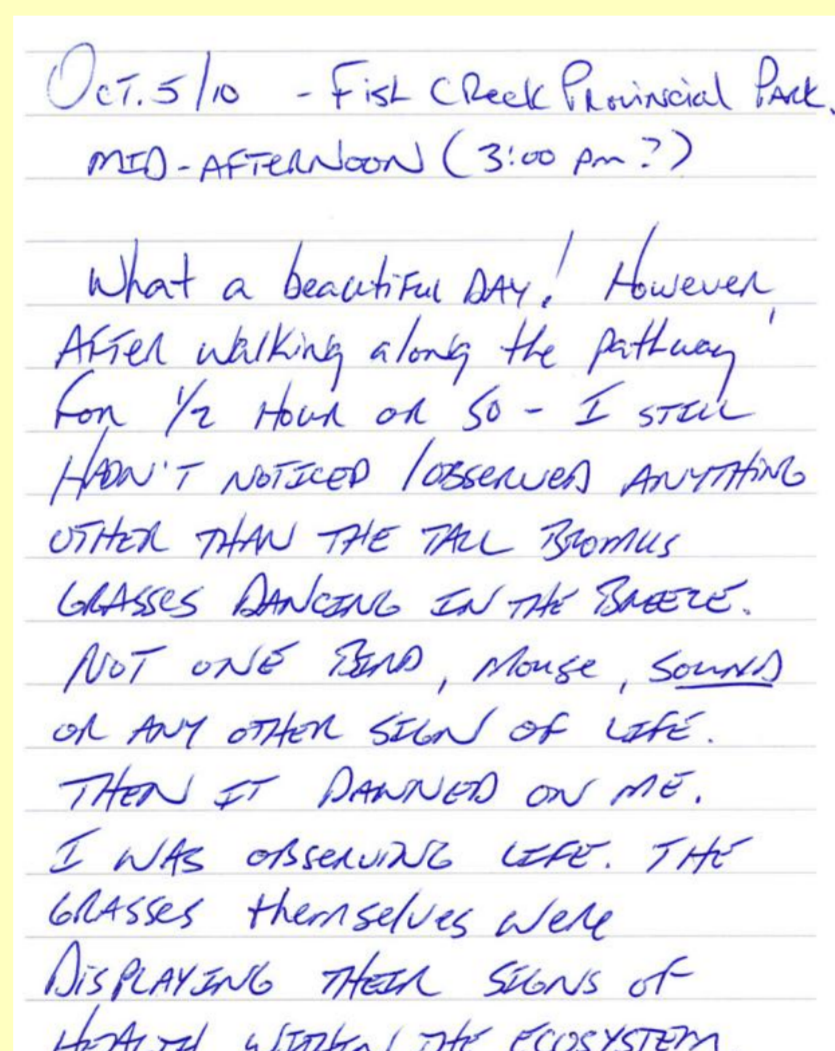 Oct. 5/10 - Fish Creek Provincial Park.
MID-AFTERNOON (3:00 pm?)
What a beautiful DAY! However,
AFTER walking along the pathway
For 1/2 Hour or so - I STILL
HADN'T NOTICED/OBSERVED ANYTHING
OTHER THAN THE TALL BROMUS
GRASSES DANCING IN THE BREEZE.
NOT ONE BIRD, Mouse, SOUND
OR ANY OTHER SIGN OF LIFE.
THEN IT DAWNED ON ME.
I WAS OBSERVING LIFE. THE
GRASSES themselves were
DISPLAYING THEIR SIGNS OF
HEALTH WITHIN THE ECOSYSTEM.